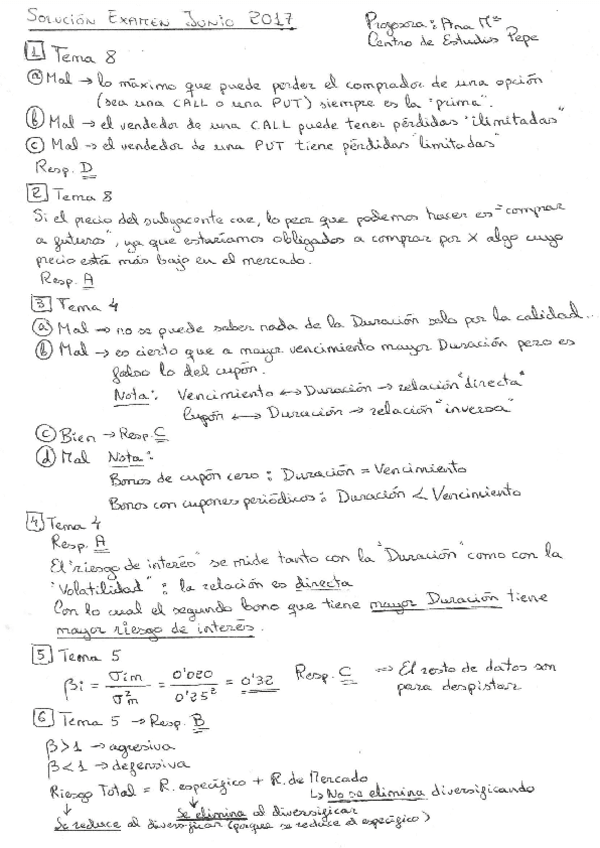 SOLUCIÓN EXAMEN JUNIO 2017
Profesora: Ana Mª
Centro de Estudios Pepe
1 Tema 8
a Mal → lo máximo que puede perder el comprador de una opción
(sea una CALL o una PUT) siempre es la "prima".
b Mal → el vendedor de una CALL puede tener pérdidas "ilimitadas"
c Mal → el vendedor de una PUT tiene pérdidas "limitadas"
Resp. D
2 Tema 8
Si el precio del subyacente cae, lo peor que podemos hacer es "comprar
a futuros", ya que estaríamos obligados a comprar por X algo cuyo
precio está más bajo en el mercado.
Resp. A
3 Tema 4
a Mal → no se puede saber nada de la Duración solo por la calidad...
b Mal → es cierto que a mayor vencimiento mayor Duración pero es
falso lo del cupón.
Nota: Vencimiento ↔ Duración → relación "directa"
Cupón ↔ Duración → relación "inversa"
c Bien → Resp. C
d Mal Nota:
Bonos de cupón cero: Duración = Vencimiento
Bonos con cupones periódicos: Duración < Vencimiento
4 Tema 4
Resp. A
El "riesgo de interés" se mide tanto con la "Duración" como con la
"Volatilidad": la relación es directa
Con lo cual el segundo bono que tiene mayor Duración tiene
mayor riesgo de interés.
5 Tema 5
βi = σim / σ²m = 0'020 / 0'25² = 0'32 Resp. C ⇒ El resto de datos son
para despistar
6 Tema 5 → Resp. B
β>1 → agresiva
β<1 → defensiva
Riesgo Total = R. específico + R. de Mercado
↳ No se elimina diversificando
Se elimina al diversificar
Se reduce al diversificar (porque se reduce el específico)